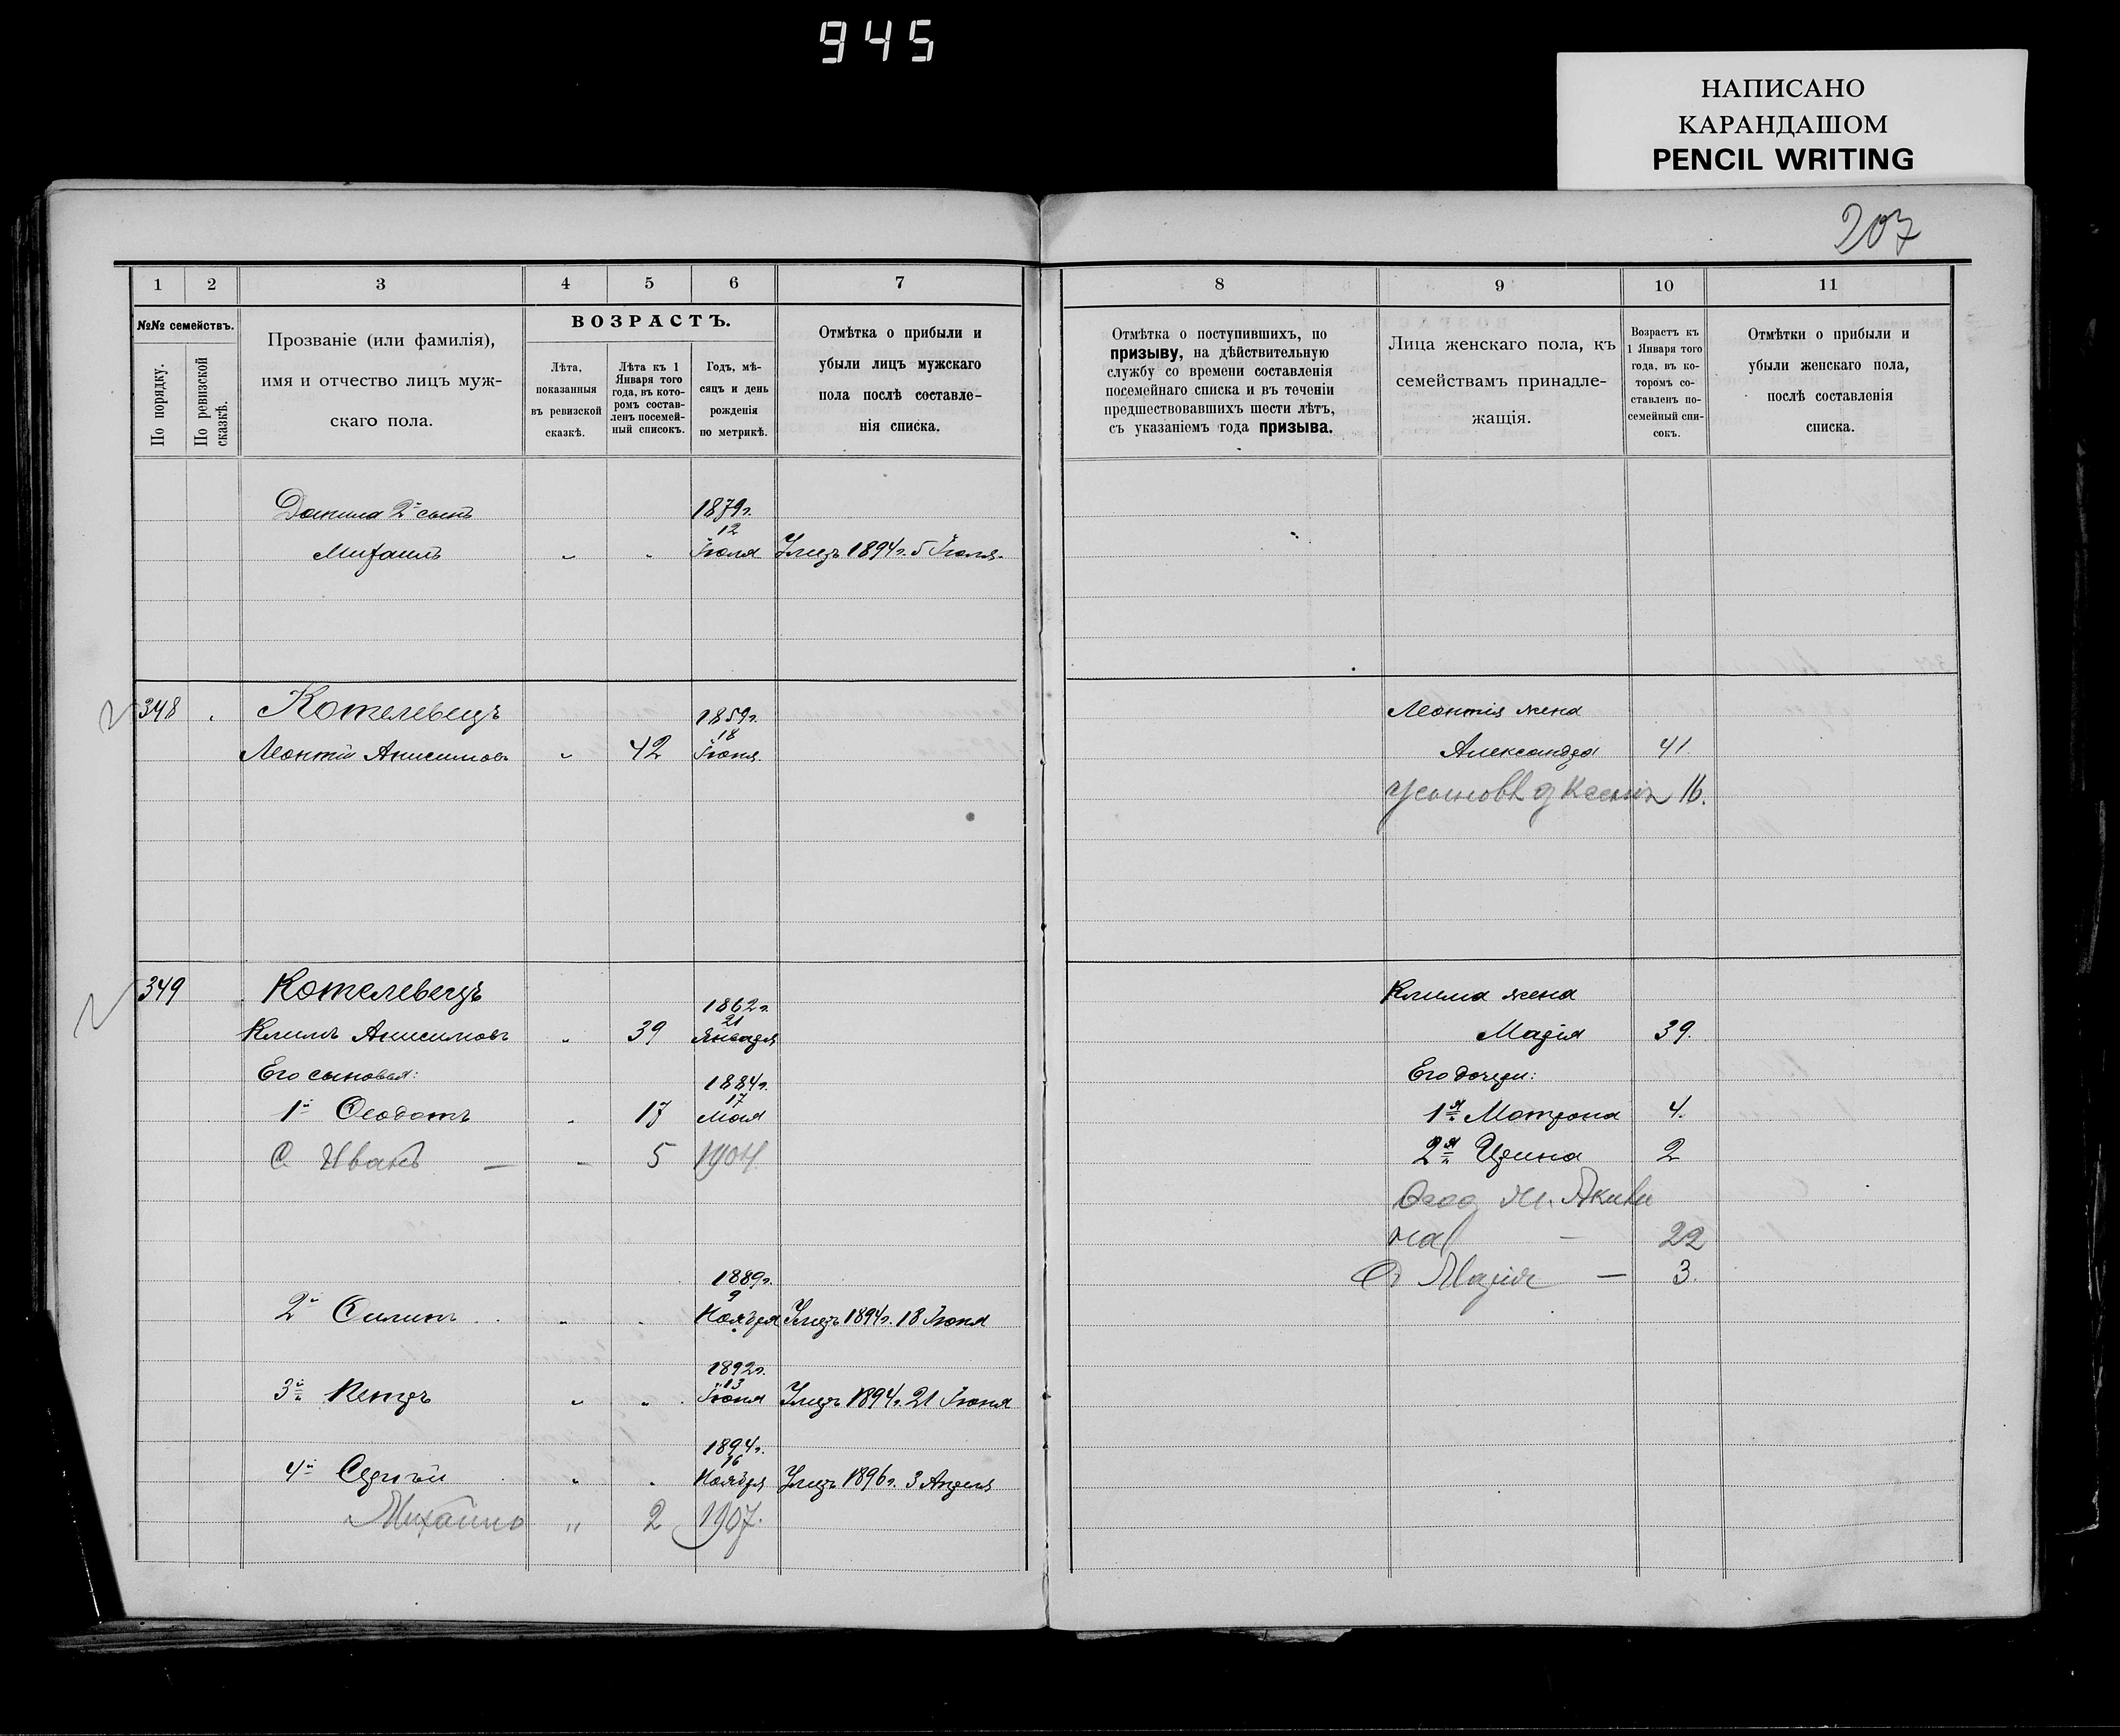 945
НАПИСАНО
КАРАНДАШОМ
PENCIL WRITING
207
1 2 3 4 5 6 7
№№ семействъ.
По порядку.
По ревизской сказкѣ.
Прозваніе (или фамилія),
имя и отчество лицъ муж-
скаго пола.
ВОЗРАСТЪ.
Лѣта,
показанныя
въ ревизской
сказкѣ.
Лѣта къ 1
Января того
года, въ кото-
ромъ состав-
ленъ посемей-
ный списокъ.
Годъ, мѣ-
сяцъ и день
рожденія
по метрикѣ.
Отмѣтка о прибыли и
убыли лицъ мужскаго
пола послѣ составле-
нія списка.
Данила 2й сынъ 1879г.
12
Михаилъ „ „ Іюля Умеръ 1894г. 5 Іюля.
348 Котелевецъ 1859г.
18
Леонтій Анисимовъ „ 42 Іюня.
349 Котелевецъ 1862г.
21
Климъ Анисимовъ „ 39 Января
Его сыновья: 1884г.
17
1й Ѳеодотъ „ 17 Мая
С. Иванъ — – 5 1904.
1889г.
9
2й Филипъ „ „ Ноября Умеръ 1894г. 18 Іюня
1892г.
13
3й Петръ „ „ Іюня Умеръ 1894г. 21 Іюня
1894г.
16
4й Сергѣй „ „ Ноября Умеръ 1896г. 3 Апреля
Михаилъ „ 2 1907.
8 9 10 11
Отмѣтка о поступившихъ, по
призыву, на дѣйствительную
службу со времени составленія
посемейнаго списка и въ теченіи
предшествовавшихъ шести лѣтъ,
съ указаніемъ года призыва.
Лица женскаго пола, къ
семействамъ принадле-
жащія.
Возрастъ къ
1 Января того
года, въ ко-
торомъ со-
ставленъ по-
семейный спи-
сокъ.
Отмѣтки о прибыли и
убыли женскаго пола,
послѣ составленія
списка.
Леонтія жена
Александра 41
д Ксенія 16.
Клима жена
Марія 39.
Его дочери:
1я Матрона 4.
2я Ирина 2
Ѳеод ж. Акили
на — 22
Д Марія — 3.